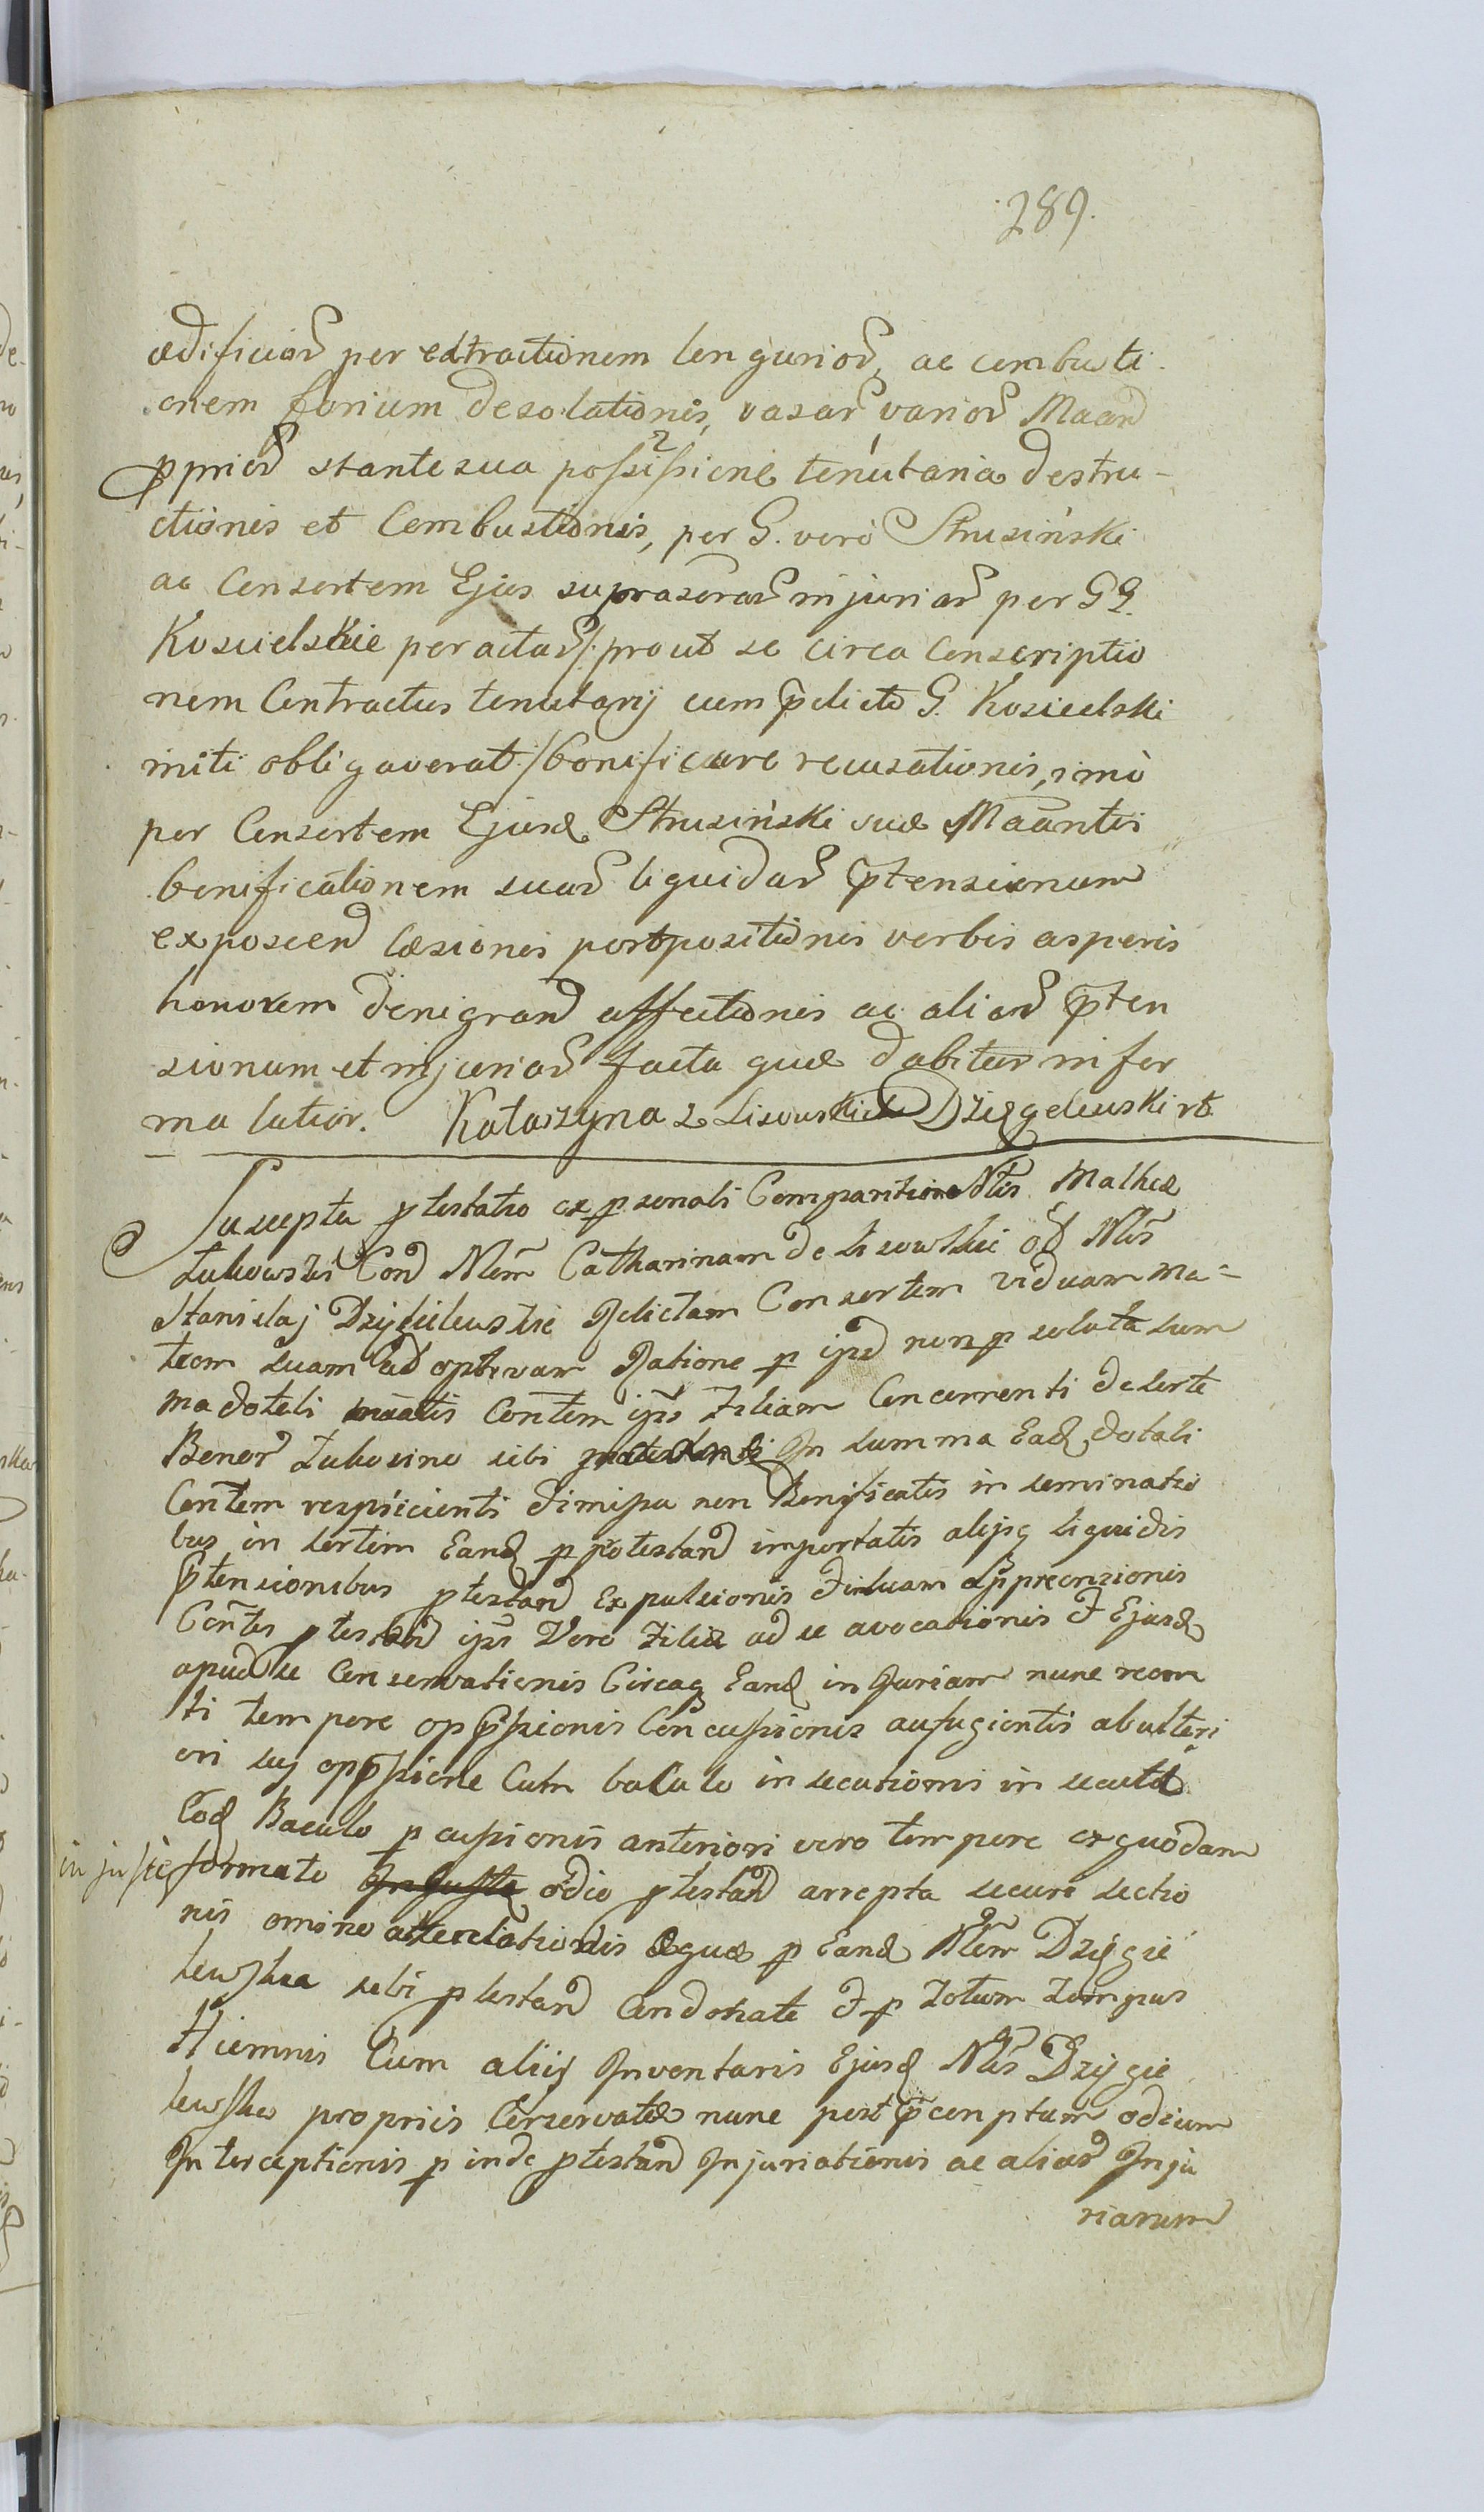 289.
ædificior̃ per extractionem lengurior̃, ac combusti
onem forium desolationis, vasar̃ varior̃ Maand̃
ppriar̃ stante sua possessione tenutaria destru-
ctionis et Combustionis, per G. vero Strusiński
ac Consortem Ejus suprascrar̃ injuriar̃ per GG.
Koscielskie peractar̃ /: prout se circa Conscriptio
nem Contractus tenutarij cum p̃dicto G. Koscielski
initi obligaverat :/ bonificare recusationis, imò
per Consortem Ejusd Strusiński suæ Maantis
bonificationem suar̃ liquidar̃ p̃tensionum
exposcend̃ læsionis postpositionis verbis asperis
honorem denigrand̃ affectionis ac aliar̃ p̃ten
sionum et injuriar̃ facta quæ dabitur in for
ma latior. Katarzyna z Lisowskich Dzięgelewski vt
Suscepta ptestatio ex psonali Comparitione Nlis Mathei
Lukowski Con̄ Nlem Catharinam de Lisowskie ol Nlis
Stanislaj Dzięgielewskie Relictam Consortem viduam Ma-
trem suam adoptivam Ratione p ipsā non psoluta sum
ma dotali maatis Contem ipsis Filiam Concernenti de sorte
Bonor̃ Lukosino sibi In summa Ead dotali
Contem respicienti dimissa non Bonificatis in seminatio
bus in sortem Eand p ptestand̃ importatis alijsq liquidis
p̃tensionibus ptestand̃ Expulsionis
Contis ptestand̃ ipsis Vero Filiæ ad se avocationis & Ejusd
apud se Conservationis Circaq Eand in Curiam nunc recen
ti tempore opp̃ssionis Concussionis aufugientis ab ulteri
ori sui opp̃ssione Cum baculo in secutionis in secutæ
Eod Baculo pcussionis anteriori vero tempore ex quodam
injuste formato Injuste odio ptestand̃ arrepta securi sectio
nis omino attentationis Equæ p Eand Nlem Dzięgie
lewska sibi ptestand̃ Condonatæ & p Totum Tempus
Hiemnis Cum aliis Inventaris Ejusd Nlis Dzięgie
lewska propriis Conservatæ nunc post p̃conptum odium
Interceptionis p inde ptestand̃ Injuriationis ac aliar̃ Inju
riarum